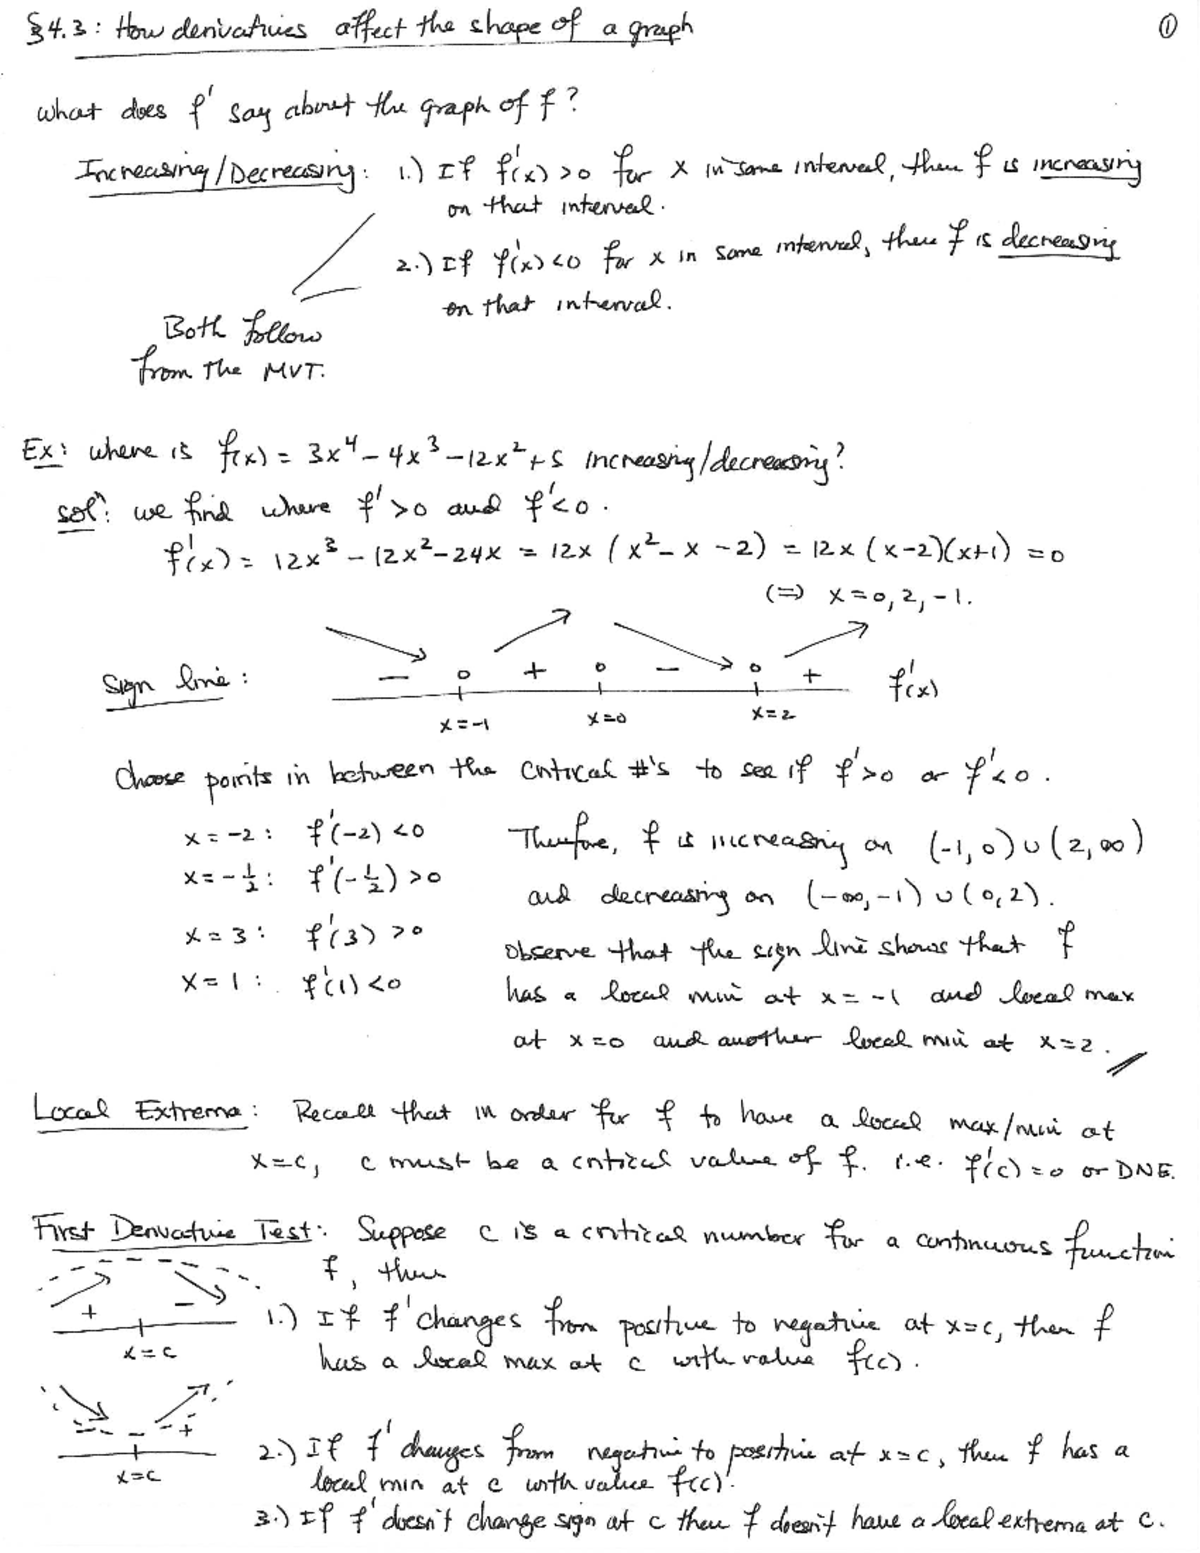 §4.3: How derivatives affect the shape of a graph
①
What does f' say about the graph of f?
Increasing/Decreasing: 1.) If f'(x) > 0 for x in some interval, then f is increasing
on that interval.
2.) If f'(x) < 0 for x in some interval, then f is decreasing
on that interval.
Both follow
from the MVT.
Ex: where is f(x) = 3x⁴ - 4x³ - 12x² + 5 increasing/decreasing?
solⁿ: we find where f' > 0 and f' < 0.
f'(x) = 12x³ - 12x² - 24x = 12x (x² - x - 2) = 12x (x-2)(x+1) = 0
(=) x = 0, 2, -1.
Sign line: - 0 + 0 - 0 + f'(x)
x=-1 x=0 x=2
Choose points in between the critical #'s to see if f'>0 or f'<0.
x = -2: f'(-2) < 0
x = -½: f'(-½) > 0
x = 3: f'(3) > 0
x = 1: f'(1) < 0
Therefore, f is increasing on (-1, 0) ∪ (2, ∞)
and decreasing on (-∞, -1) ∪ (0, 2).
Observe that the sign line shows that f
has a local min at x = -1 and local max
at x = 0 and another local min at x = 2.
Local Extrema: Recall that in order for f to have a local max/min at
x = c, c must be a critical value of f. i.e. f'(c) = 0 or DNE.
First Derivative Test: Suppose c is a critical number for a continuous function
f, then
+ -
x = c
1.) If f' changes from positive to negative at x=c, then f
has a local max at c with value f(c).
- +
x=c
2.) If f' changes from negative to positive at x=c, then f has a
local min at c with value f(c).
3.) If f' doesn't change sign at c then f doesn't have a local extrema at c.